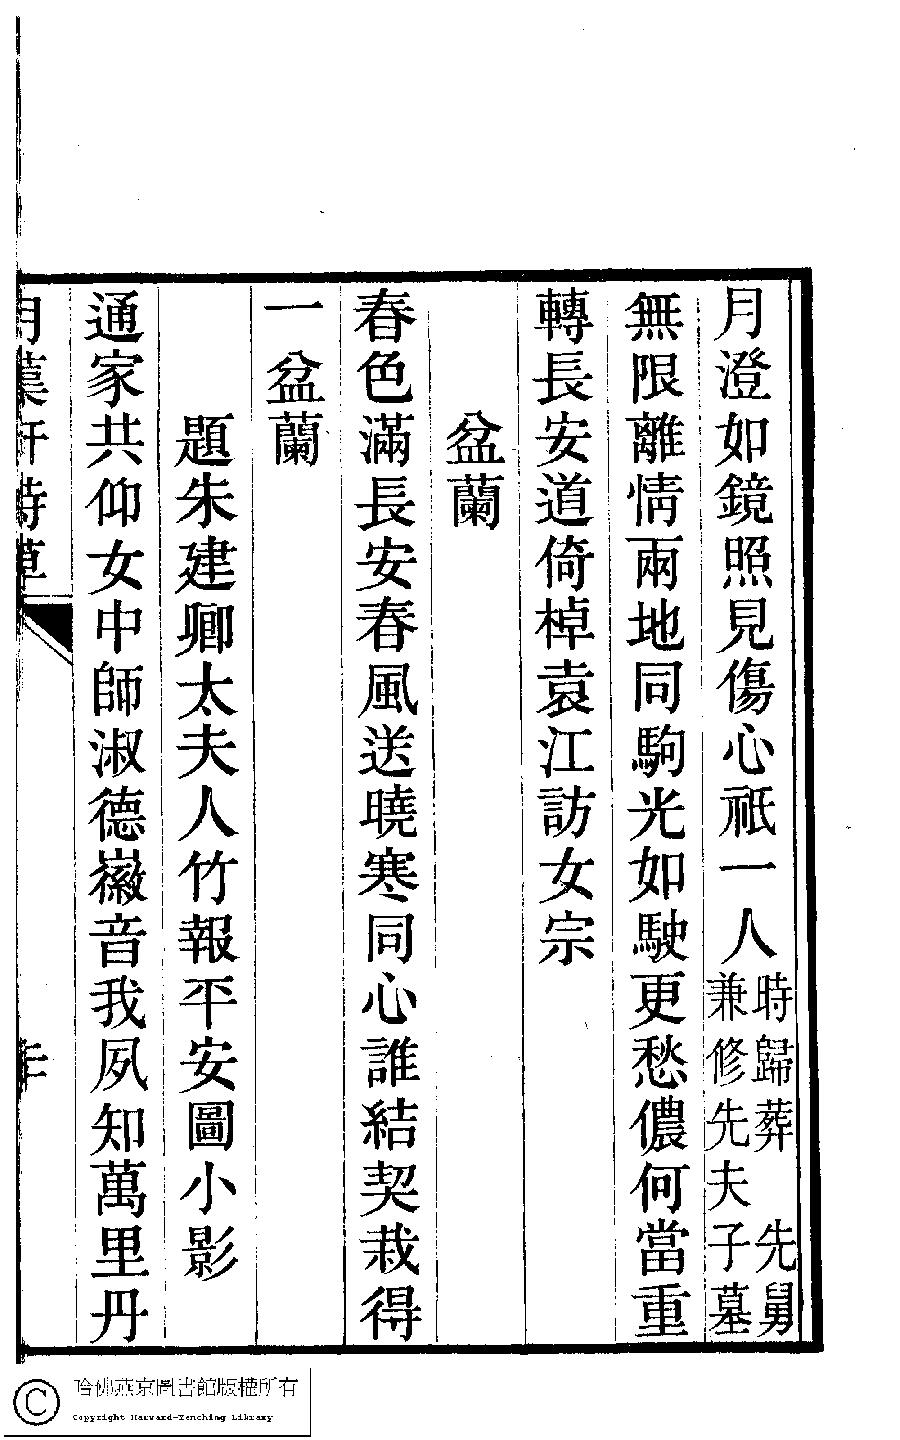 月澄如鏡照見傷心祇一人時歸葬　先舅兼修先夫子墓
無限離情兩地同駒光如駛更愁儂何當重
轉長安道倚棹袁江訪女宗
盆蘭
春色滿長安春風送曉寒同心誰結契栽得
一盆蘭
題朱建卿太夫人竹報平安圖小影
通家共仰女中師淑德徽音我夙知萬里丹
哈佛燕京圖書館版權所有
Copyright Harvard-Yenching Library